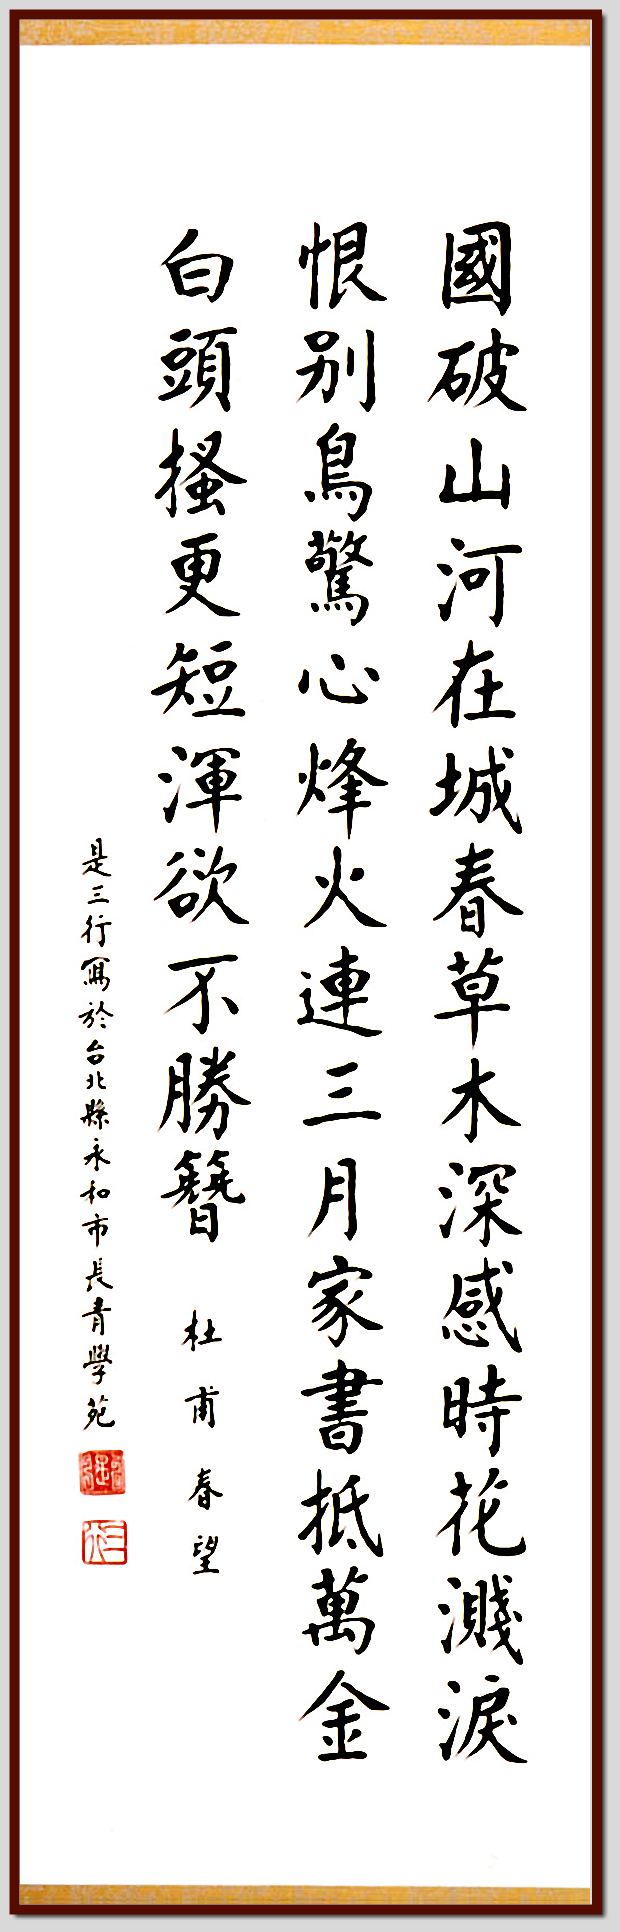 國破山河在城春草木深感時花濺淚
恨別鳥驚心烽火連三月家書抵萬金
白頭搔更短渾欲不勝簪 杜甫春望
是三行寫於台北縣永和市長青學苑